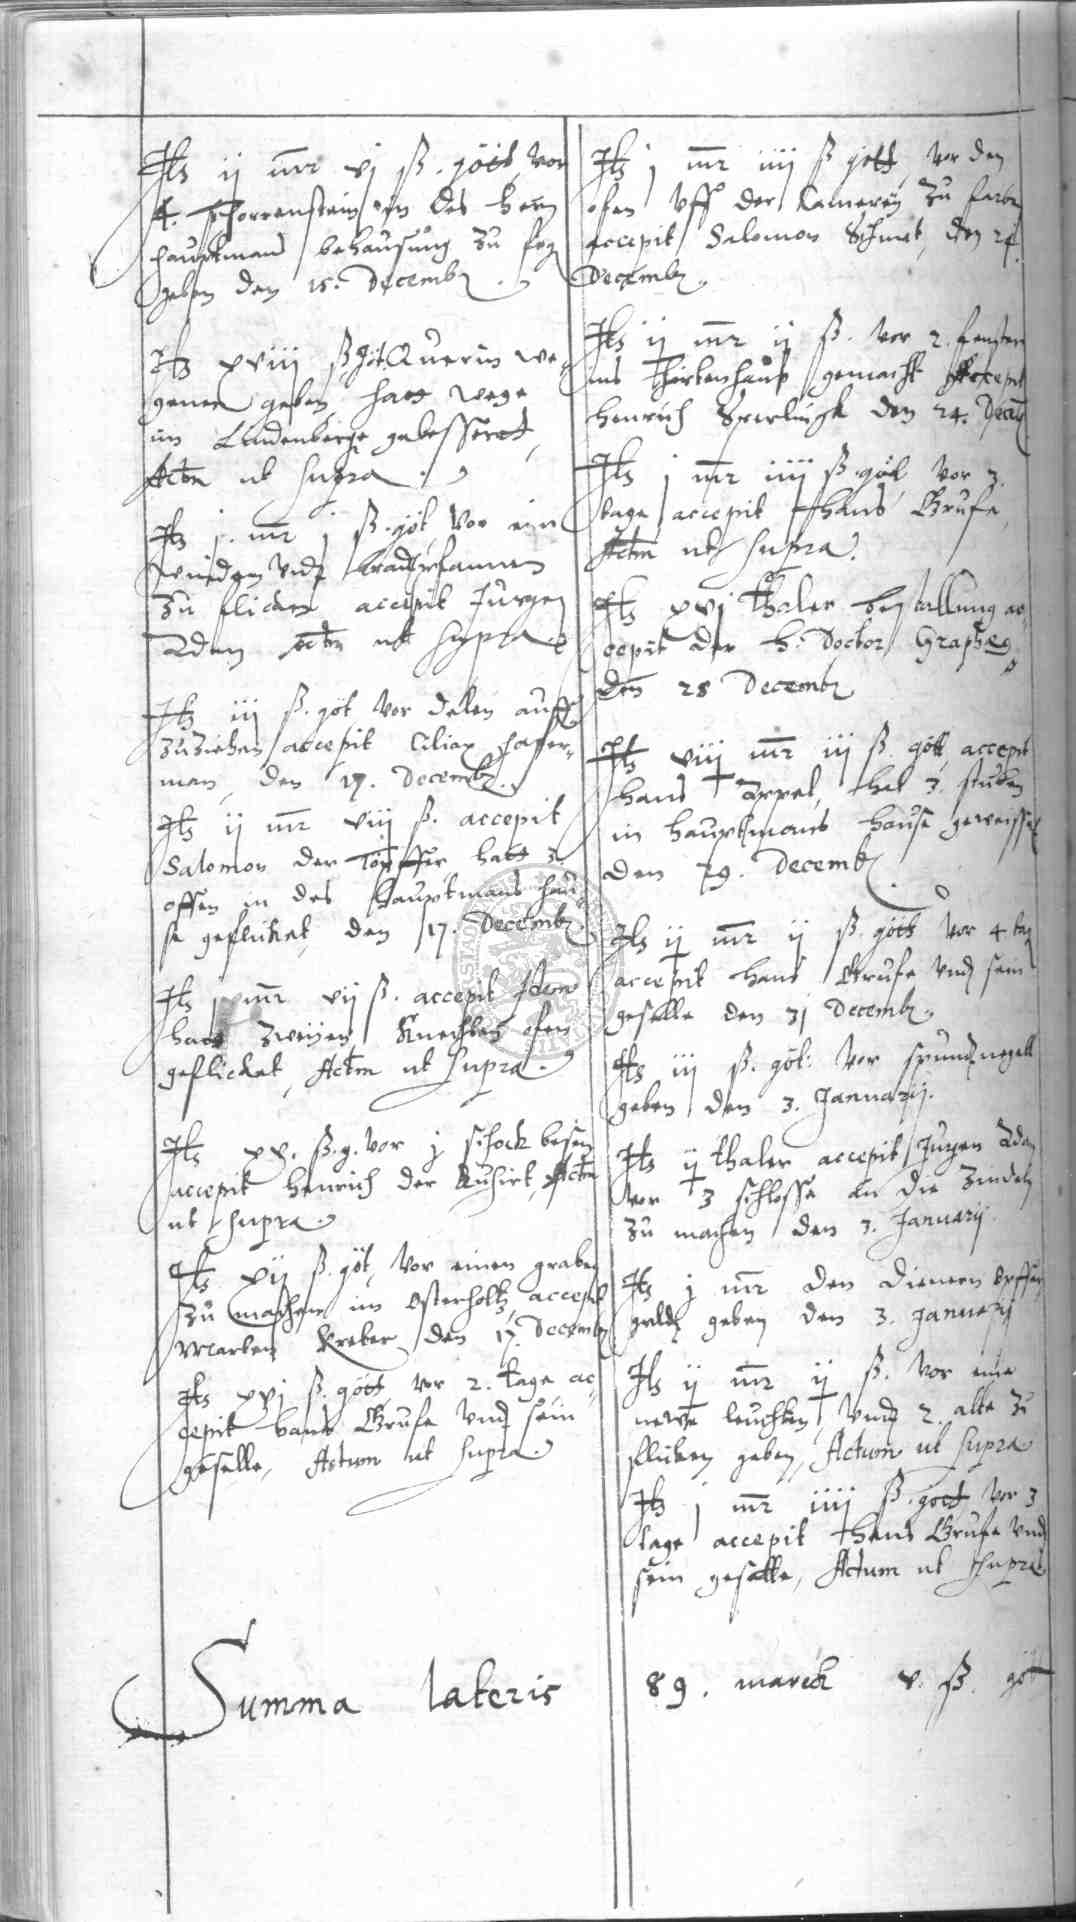 Itz ij mr vj ß. gött. vor
4. schorrenstein in des hern
hauptman behausung zu feg
geben den 15. Decemb.
Itz xviii ß göt. Querin We-
gener geben, hatt wege
im Lindenberge gebessert,
Actm ut supra.
Itz j. mr j ß. göt, vor ein
windem vnd
zu flicken accepit Jurgen
Adam actm ut supra.
Itz iij ß. göt, vor delen auff
zuziehen accepit Ciliax hafer-
man, den 17. Decemb.
Itz ij mr viii ß. accepit
Salomon der Töpffer, hatt 3.
offen in des hauptmans hau-
se geflicket, den 17. Decemb.
Itz mr vij ß. accepit Idem
hatt zweyen Knechten ofen
geflicket, Actm ut supra.
Itz xx. ß. g. vor j schock besen
accepit Henrich der Kuhirt, Actm
ut supra.
Itz xij ß. göt, vor einen graben
zu machen im Osterholtz, accepit
Marten Kreter den 17. Decemb
Itz xvj ß. gött, vor 2. tage ac-
cepit hans Grufe vnd sein
geselle, Actum ut supra.
Itz j mr iiij ß gött, vor den
ofen vff der Camerey zu
accepit Salomon Schmet, den 24.
Decemb.
Itz ij mr ij ß. vor 2. fenster
ins gemacht accepit
Henrich Sperlingk den 24. Decem
Itz j mr iiij ß. göt, vor 3.
tage accepit Hans Grufe,
Actm ut supra.
Itz xvj thaler bestallung ac-
cepit der H. Doctor
den 28 Decemb
Itz viij mr iij ß. gött, accepit
hans Appel, hat 3. stuben
in hauptmans hause geweisset
den 29. Decemb.
Itz ij mr ij ß. gött vor 4 tag
accepit hans Grufe vnd sein
geselle den 31 Decemb.
Itz iij ß. göt. vor spundnegell
geben den 3. Januarij.
Itz ij thaler accepit Jurgen Adam
vor 3 schlosse an die Zindeln
zu machen den 3. Januarij.
Itz j mr den dienern opffer
geldt geben den 3. Januarij
Itz ij mr ij ß. vor eine
newe leuchten, vnd 2. alte zu
flicken geben, Actum ut supra
Itz j mr iiij ß. gött vor 3
tage accepit Hans Grufe vnd
sein geselle, Actum ut supra
Summa lateris 89. marck v. ß. göt